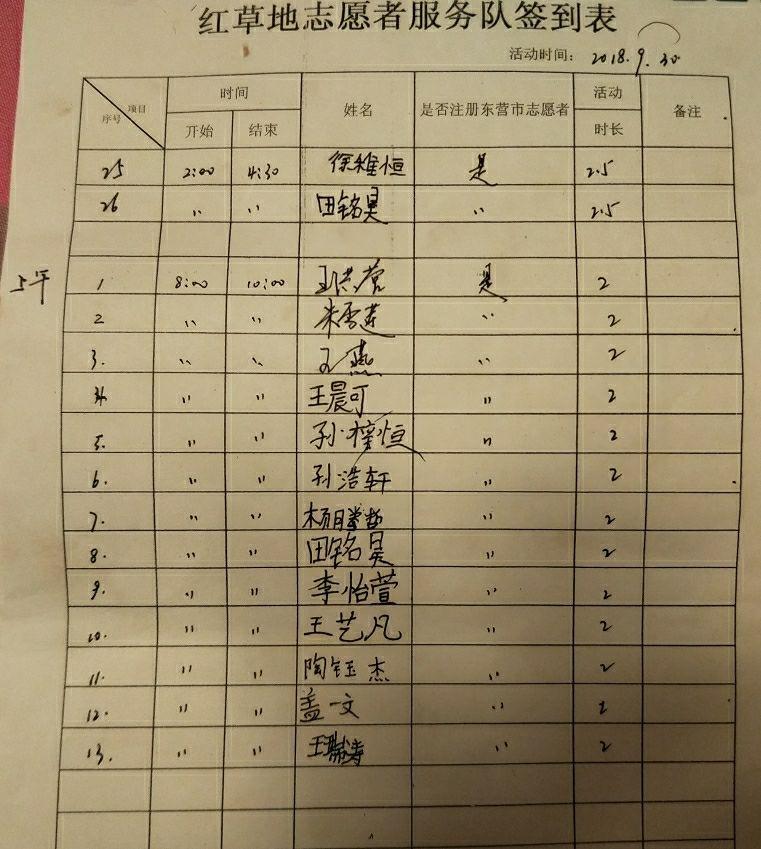 红草地志愿者服务队签到表
活动时间： 2018.9.30
项目 序号 时间 开始 结束 姓名 是否注册东营市志愿者 活动时长 备注
25 2:00 4:30 徐稚恒 是 2.5
26 〃 〃 田铭昊 〃 2.5
上午 1 8:00 10:00 王洪营 是 2
2 〃 〃 朱秀莲 〃 2
3. 〃 〃 王燕 〃 2
4. 〃 〃 王晨可 〃 2
5. 〃 〃 孙梓恒 〃 2
6. 〃 〃 孙浩轩 〃 2
7. 〃 〃 杨腾哲 〃 2
8. 〃 〃 田铭昊 〃 2
9. 〃 〃 李怡萱 〃 2
10. 〃 〃 王艺凡 〃 2
11. 〃 〃 陶钰杰 〃 2
12. 〃 〃 盖一文 〃 2
13. 〃 〃 王瑞涛 〃 2